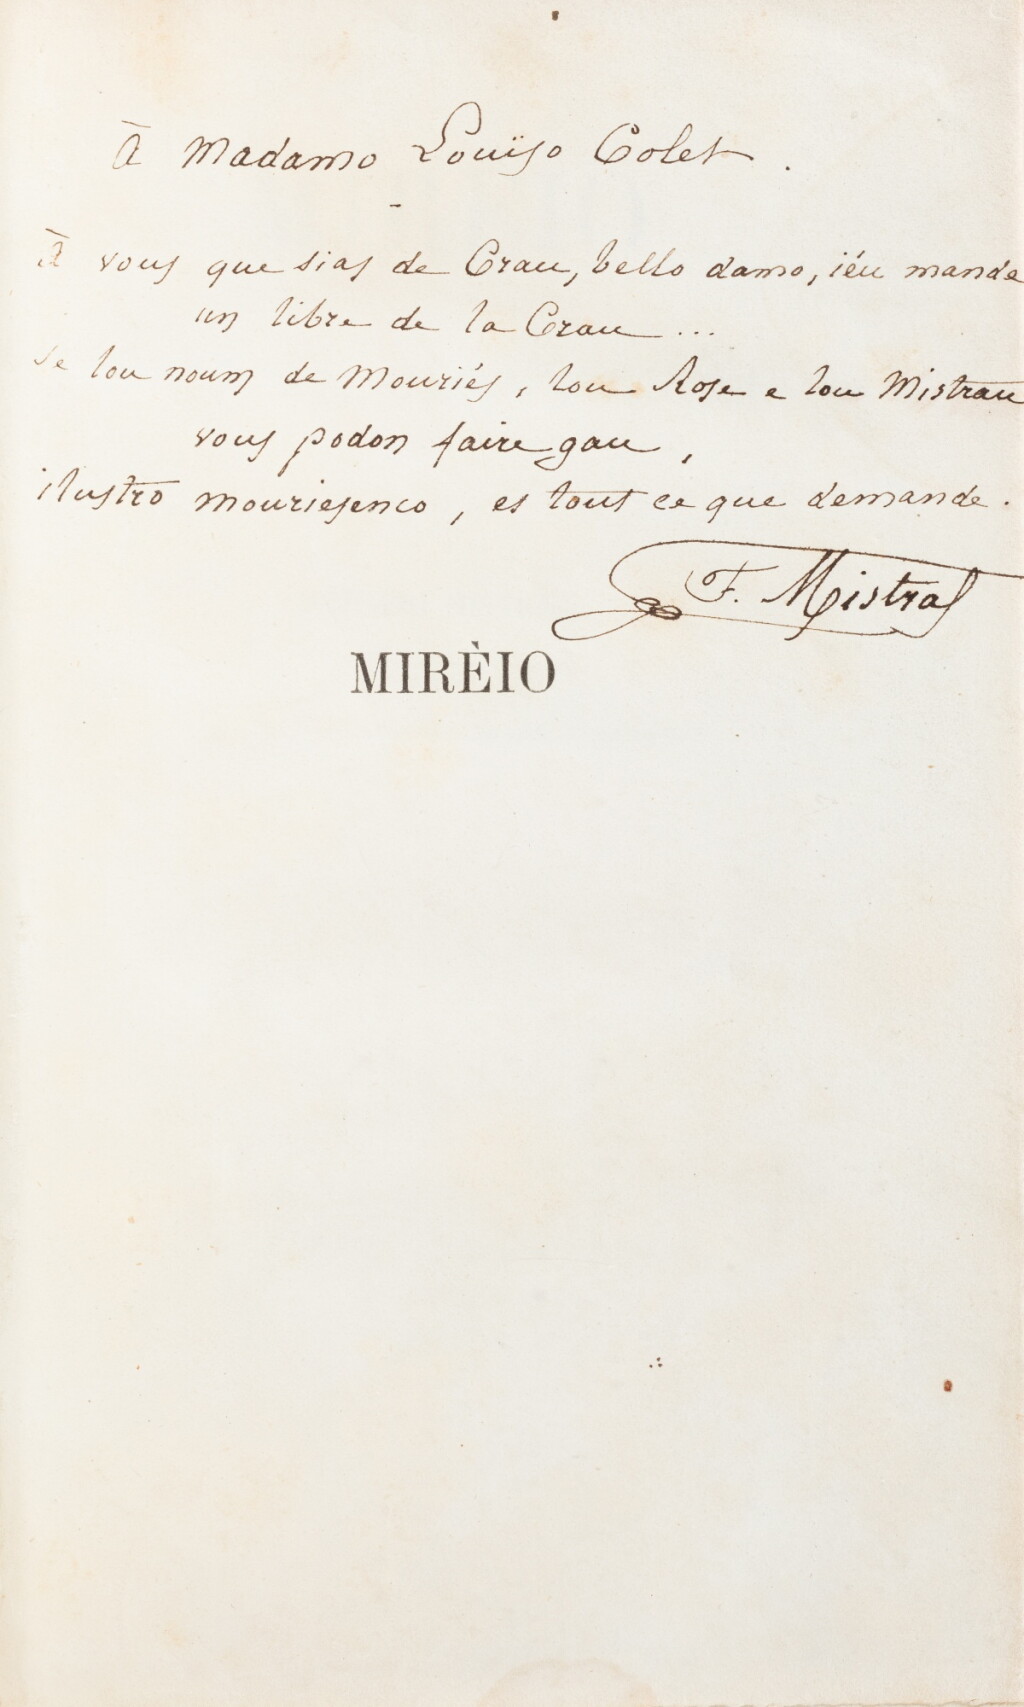 À Madamo Louïso Colet.
À vous que sias de Crau, bello damo, iéu mande
un libre de la Crau ...
Se lou noum de Mouriés, lou Rose e lou Mistrau
vous podon faire gau,
ilustro mouriesenco, es tout ce que demande.
F. Mistral
MIRÈIO